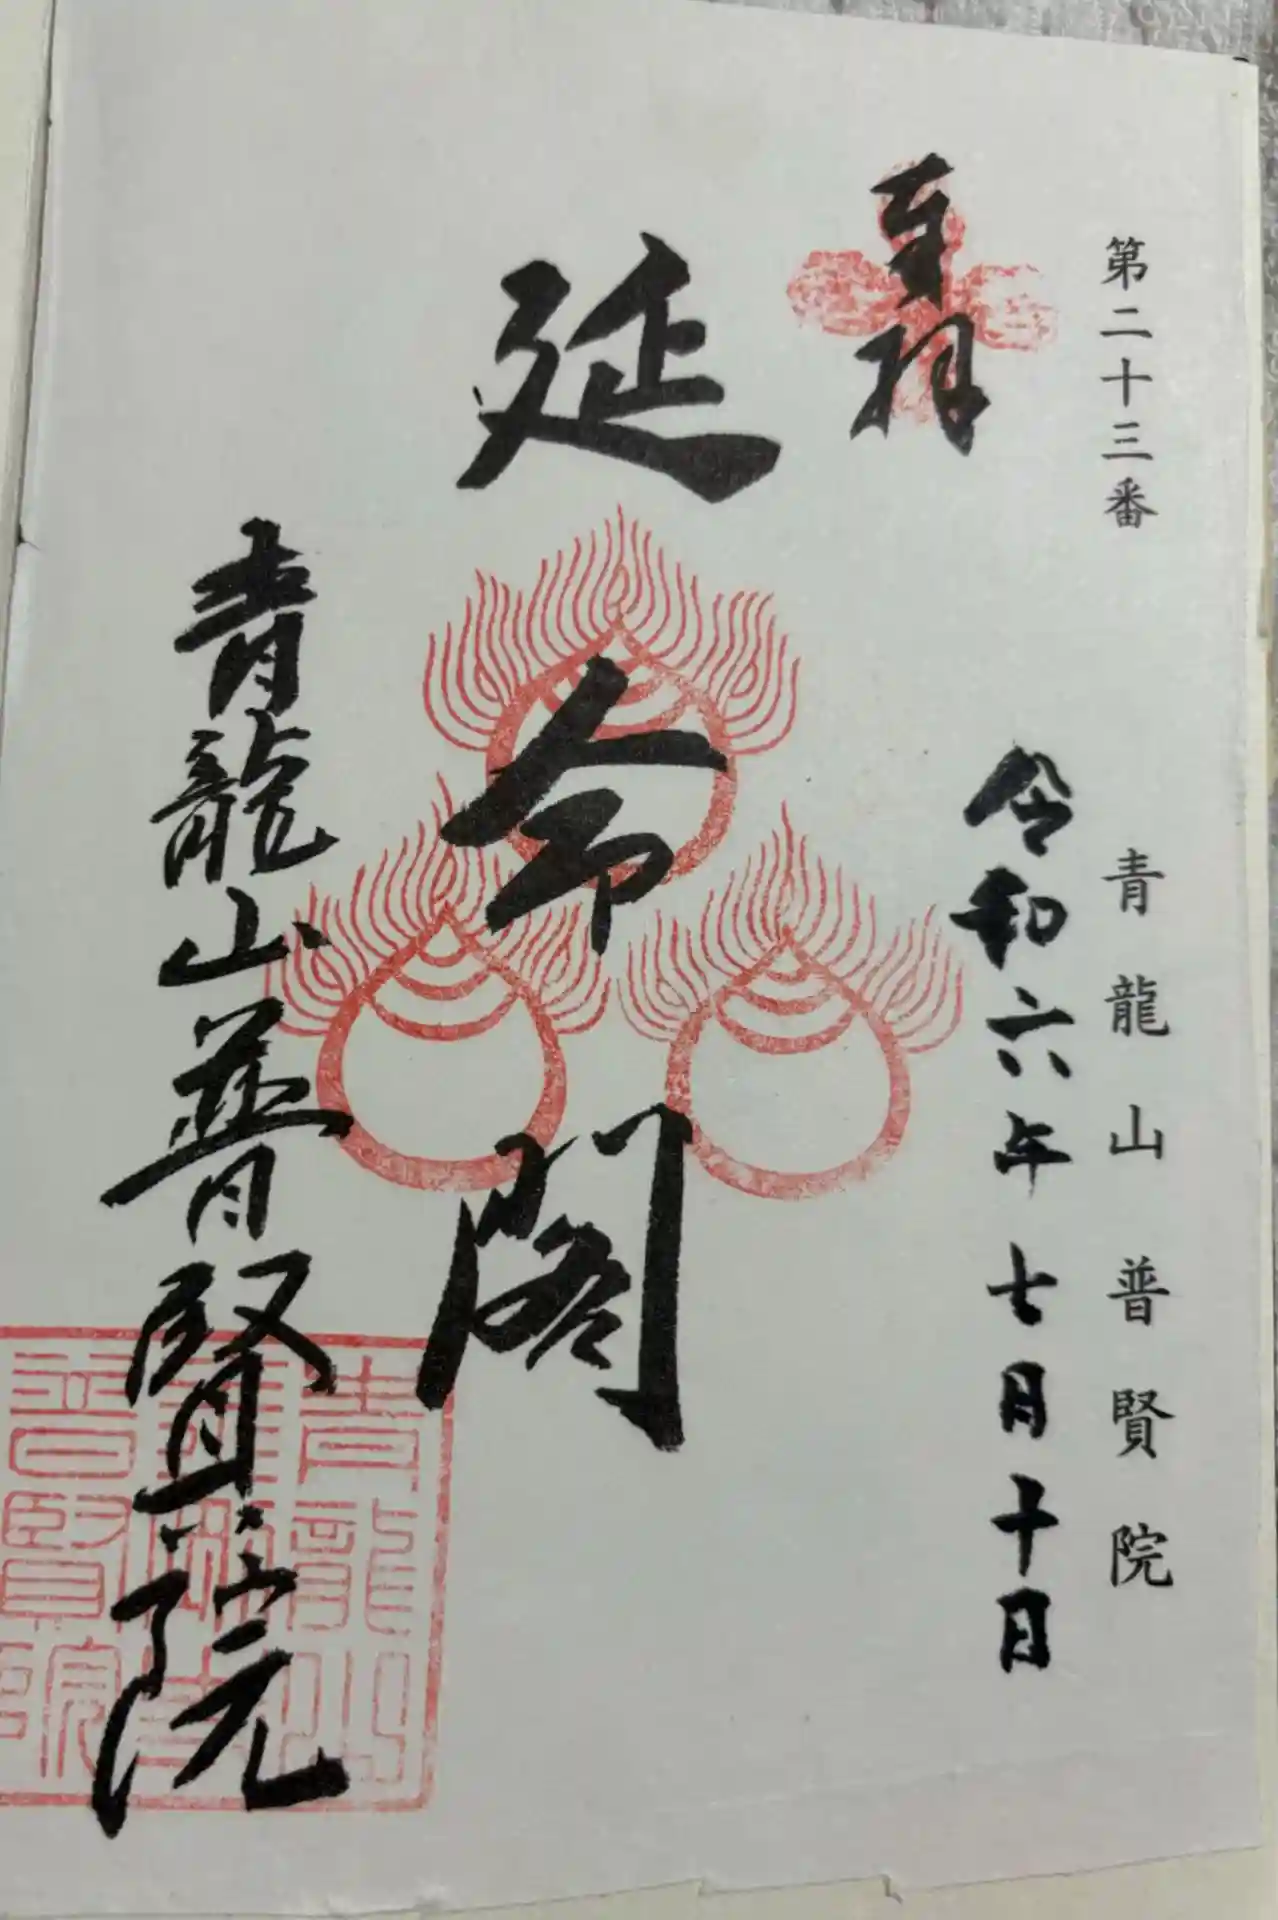 第二十三番 青龍山普賢院
奉拝 令和六年七月十日
延命閣
青龍山普賢院
青龍山
普賢院